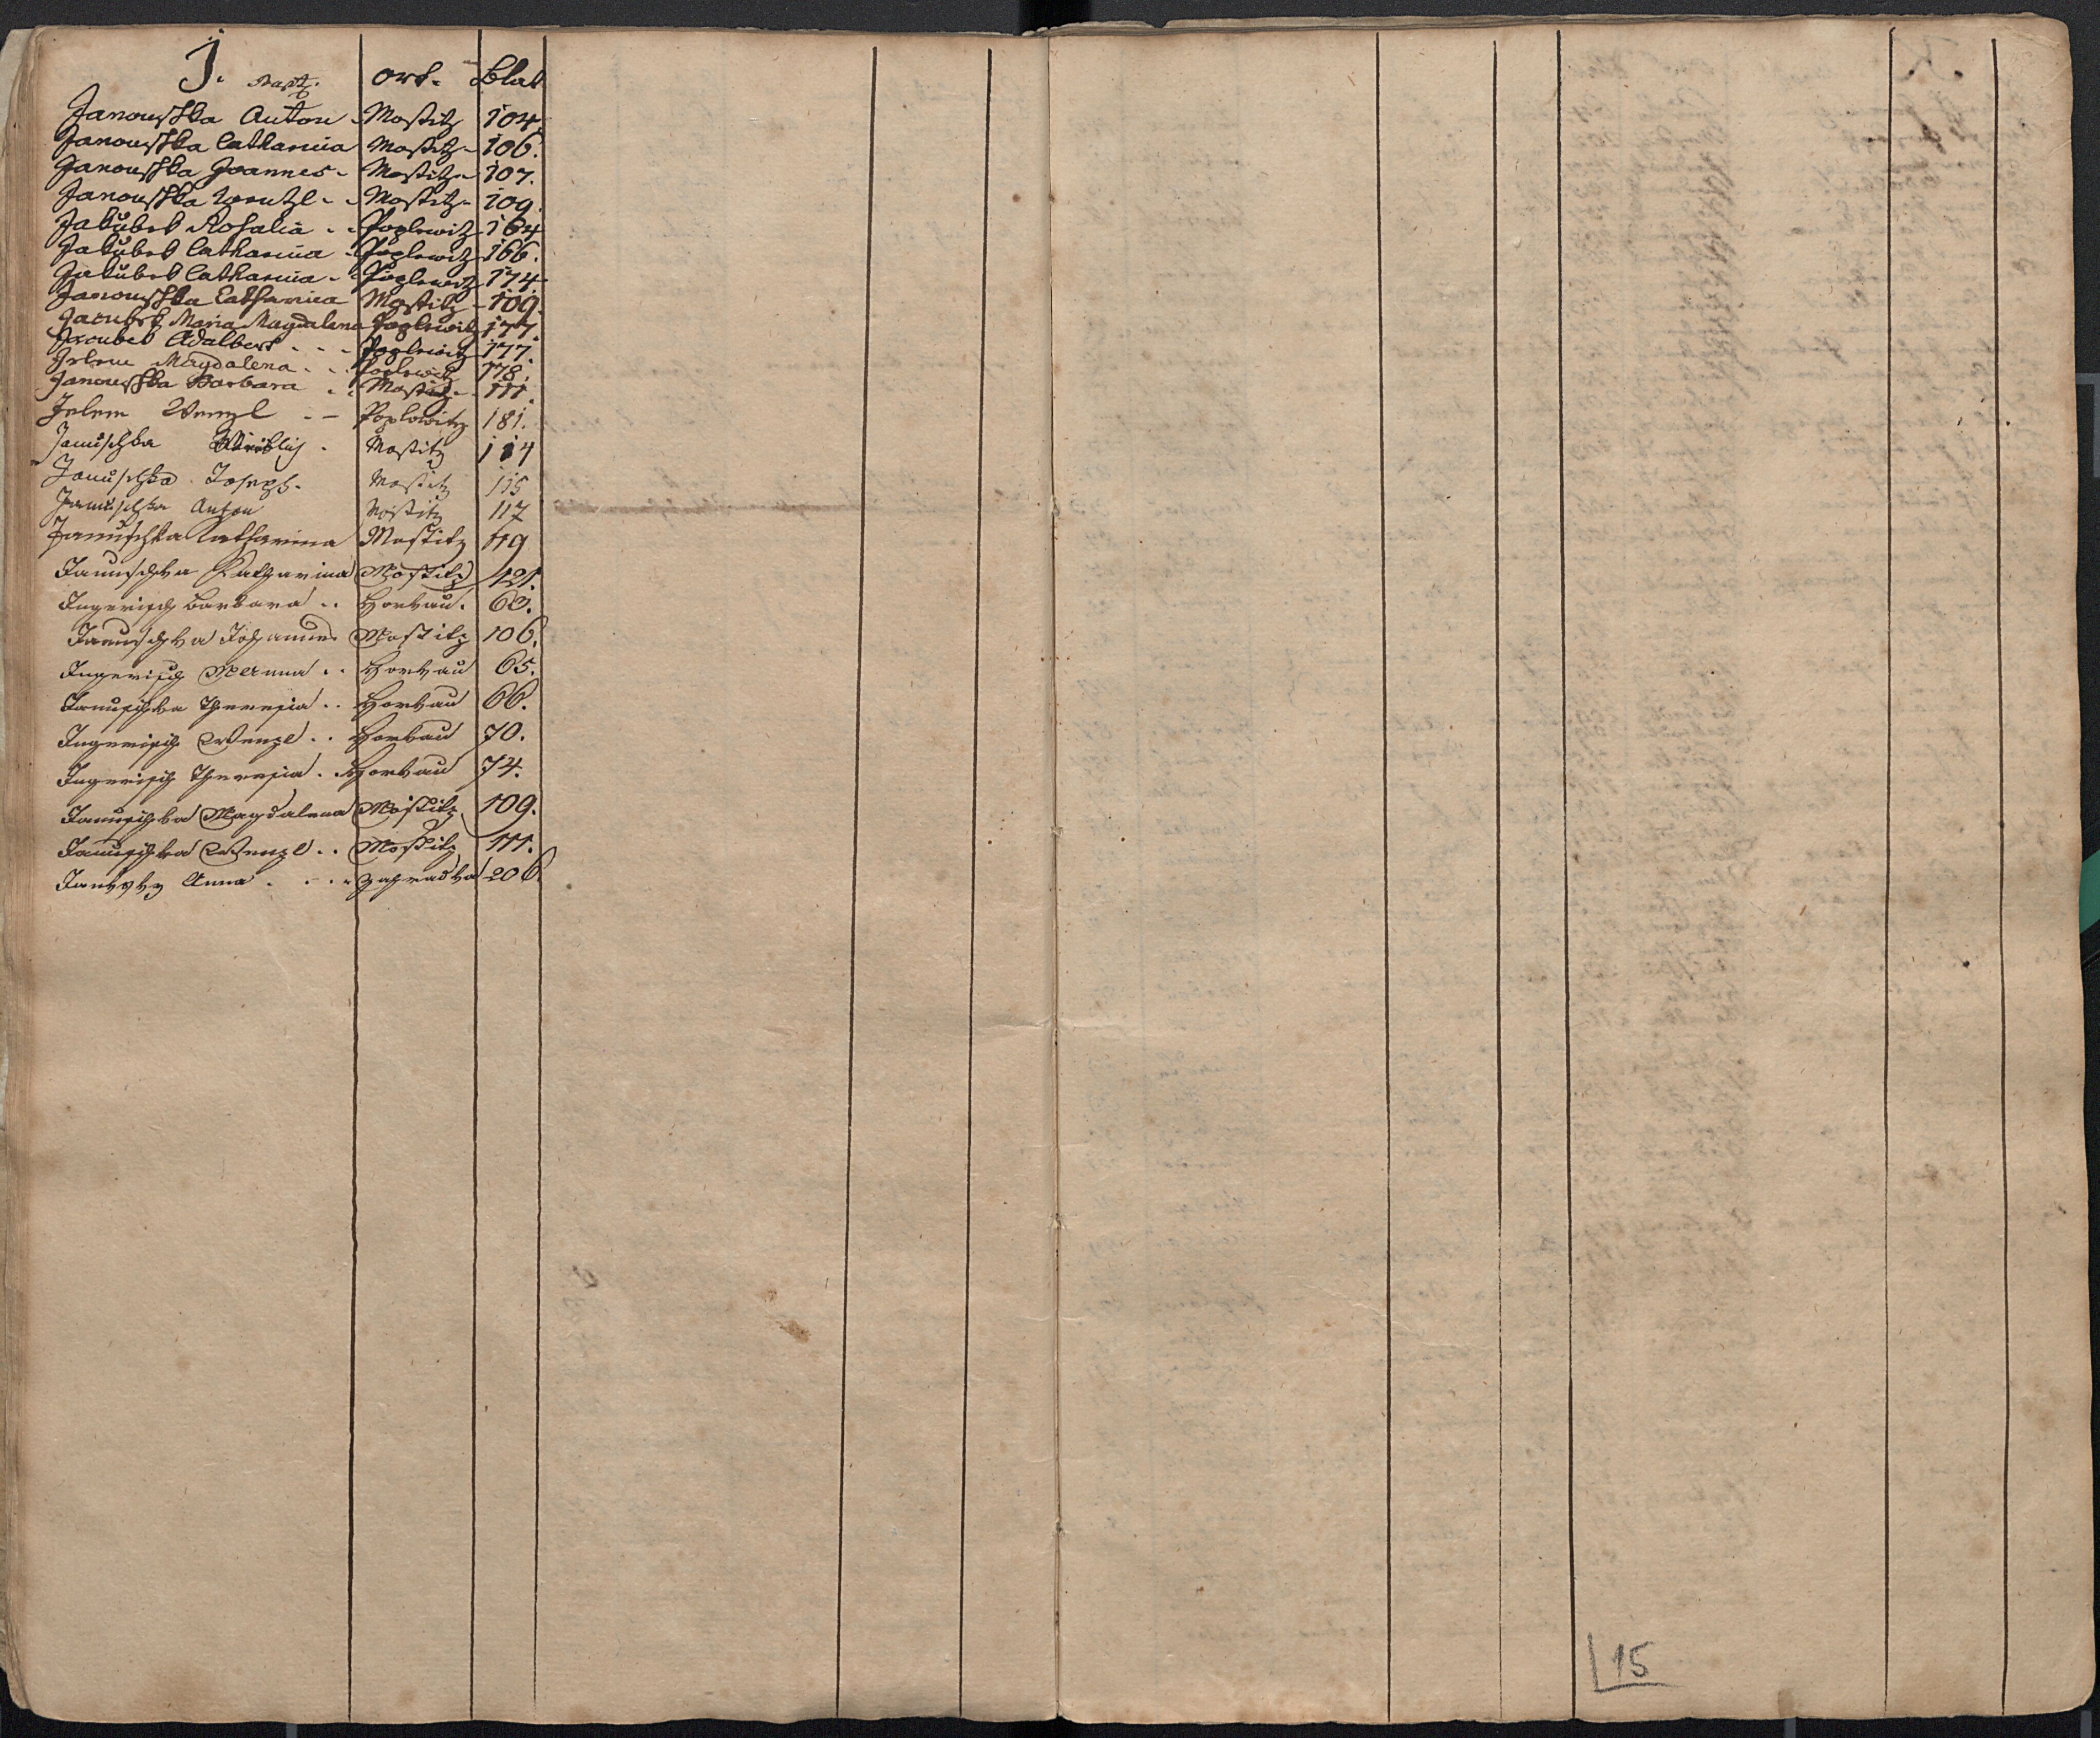 J. ort. Blat
Janouschka Anton Mostitz 104.
Janouschka Catharina Mostitz 106.
Janouschka Joannes Mostitz 107.
Janouschka Wentzl Mostitz 109.
Jakubek Rosalia Poplowitz 164
Jakubek Catharina Poplowitz 166.
Jakubek Catharina Poplowitz 174.
Janouschka Catharina Mostitz 109.
Jacubek Maria Magdalena Poplowitz 177.
Jacubek Adalbert Poplowitz 177.
Jelem Magdalena Poplowitz 178.
Janouschka Barbara Mostitz 111.
Jelem Wenzl Poplowitz 181.
Januschka Mostitz 114
Januschka Joseph. Mostitz 115
Januschka Anton Mostitz 117
Januschka Catharina Mostitz 119
Januschka Katharina Mostitz 121.
Ingerisch Barbara .. Horkau. 63.
Januschka Johannes Mostitz 106.
Ingerisch .. Horkau 65.
Januschka Theresia .. Horkau 66.
Ingerisch Wenzl .. Horkau 70.
Ingerisch Theresia . Horkau 74.
Januschka Magdalena Mostitz 109.
Januschka Wenzl .. Mostitz 111.
Anna . . . Zahradka 206.
15